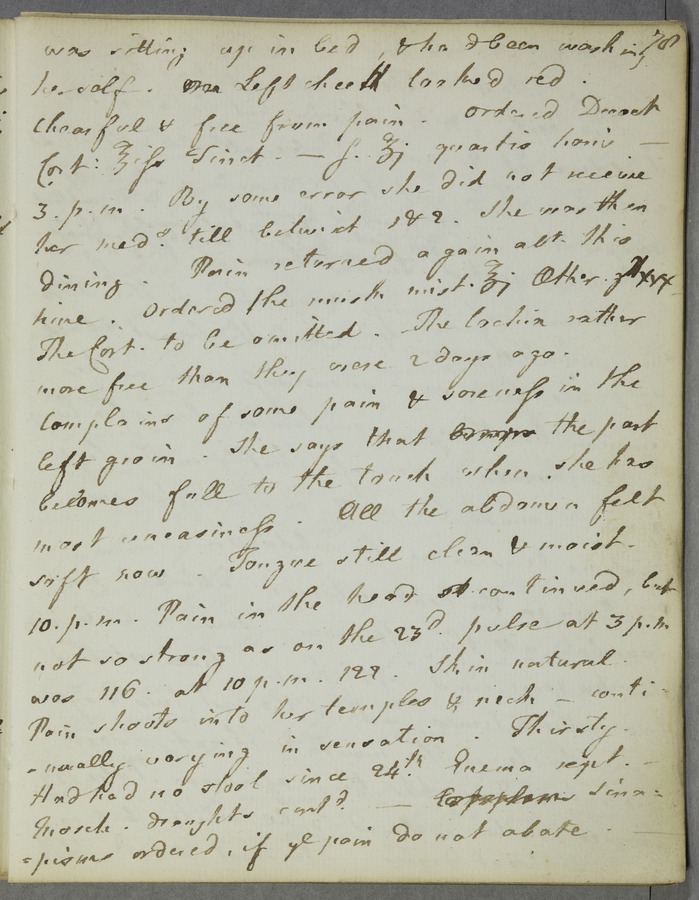 was sitting up in bed, & had been washing 78
herself. Left cheek looked red.
Chearful & free from pain. Ordered Decoct
Cort: ℥iſs Tinct. — ʒj quartis horis —
3. p. m. By some error she did not receive
her med.s till betwixt 1 & 2. She was then
dining. Pain returned again abt. this
time. Ordered the mush mist. ℥j Æther. xxx
The Cort. to be omitted. The lochia rather
more free than they were 2 days ago.
Complains of some pain & soreneſs in the
left groin. She says that the part
becomes full to the touch when she has
most uneasineſs. All the abdomen felt
soft now. Tongue still clean & moist.
10. p. m. Pain in the head continued, but
not so strong as on the 23d. pulse at 3 p.m
was 116. at 10 p. m. 122. Skin natural.
Pain shoots into her temples & neck — conti-
-nually varying in sensation. Thirsty.
Had had no stool since 24th. Enema rept. —
Mosch. draughts contd. — Sina=
=pisms ordered, if ye pain do not abate.